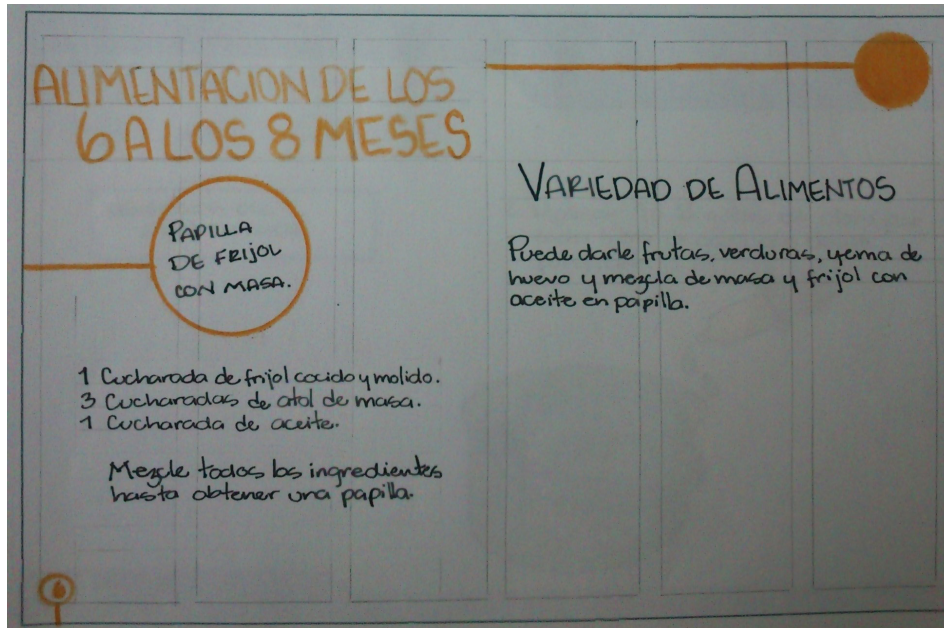 ALIMENTACION DE LOS
6 A LOS 8 MESES
PAPILLA
DE FRIJOL
CON MASA.
1 Cucharada de frijol cocido y molido.
3 Cucharadas de atol de masa.
1 Cucharada de aceite.
Mezcle todos los ingredientes
hasta obtener una papilla.
VARIEDAD DE ALIMENTOS
Puede darle frutas, verduras, yema de
huevo y mezcla de masa y frijol con
aceite en papilla.
6